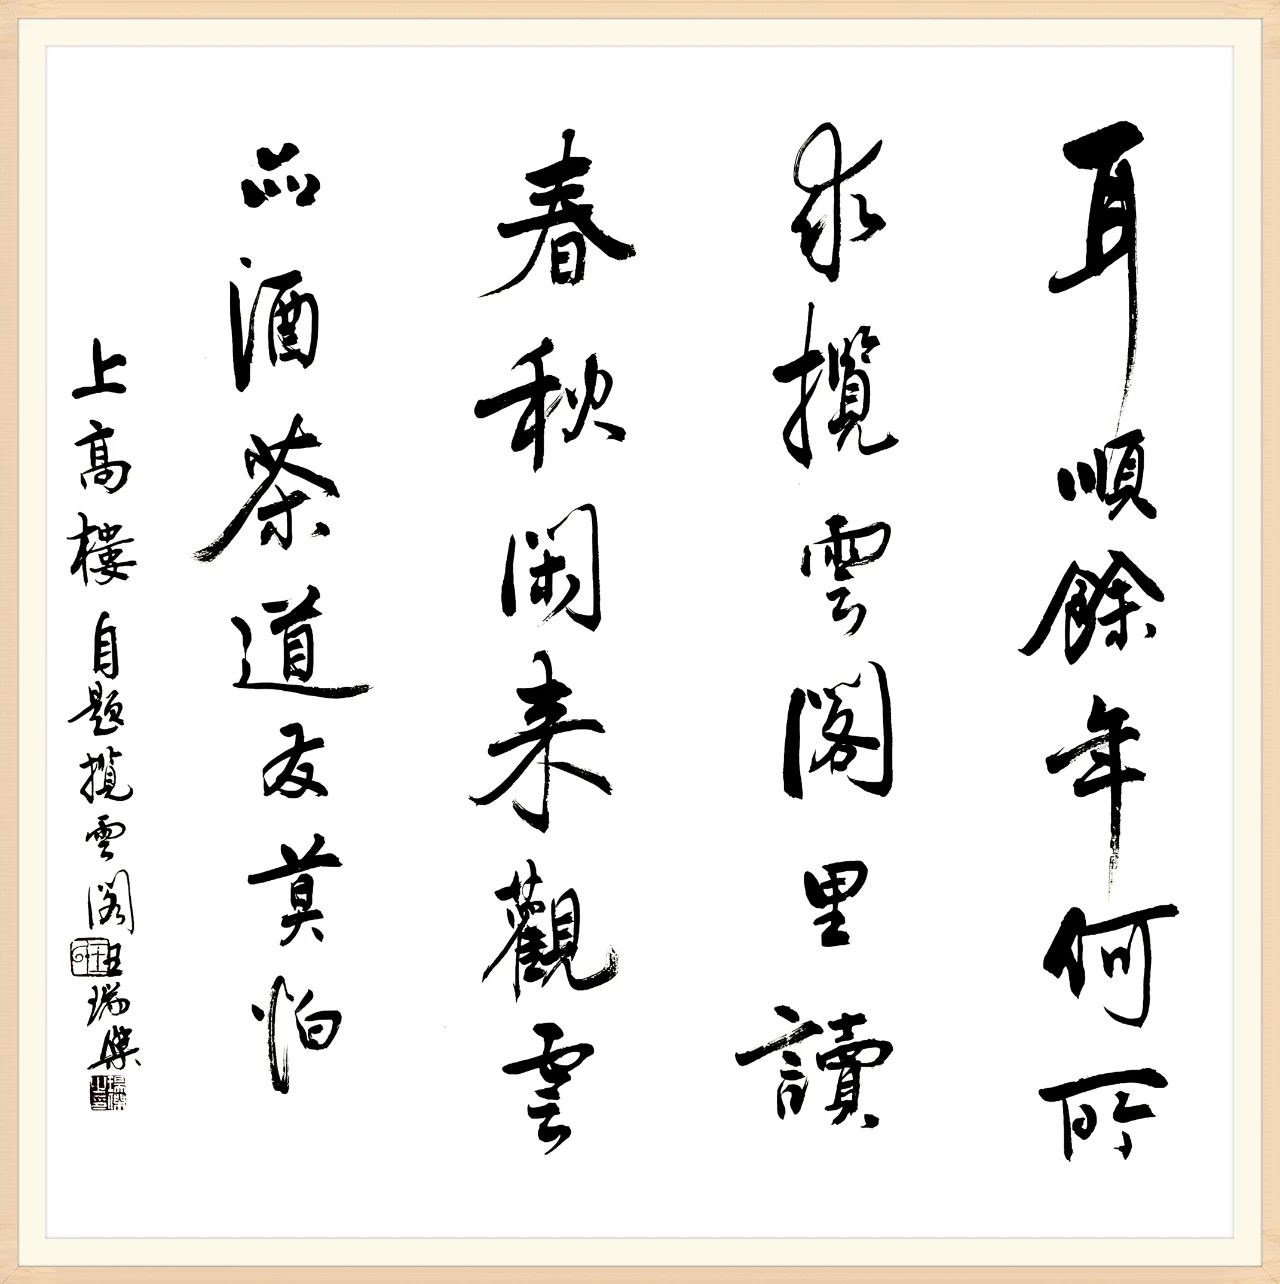 耳順餘年何所
求攬雲閣里讀
春秋閑来觀雲
品酒茶道友莫怕
上高樓自題攬雲閣王瑞傑